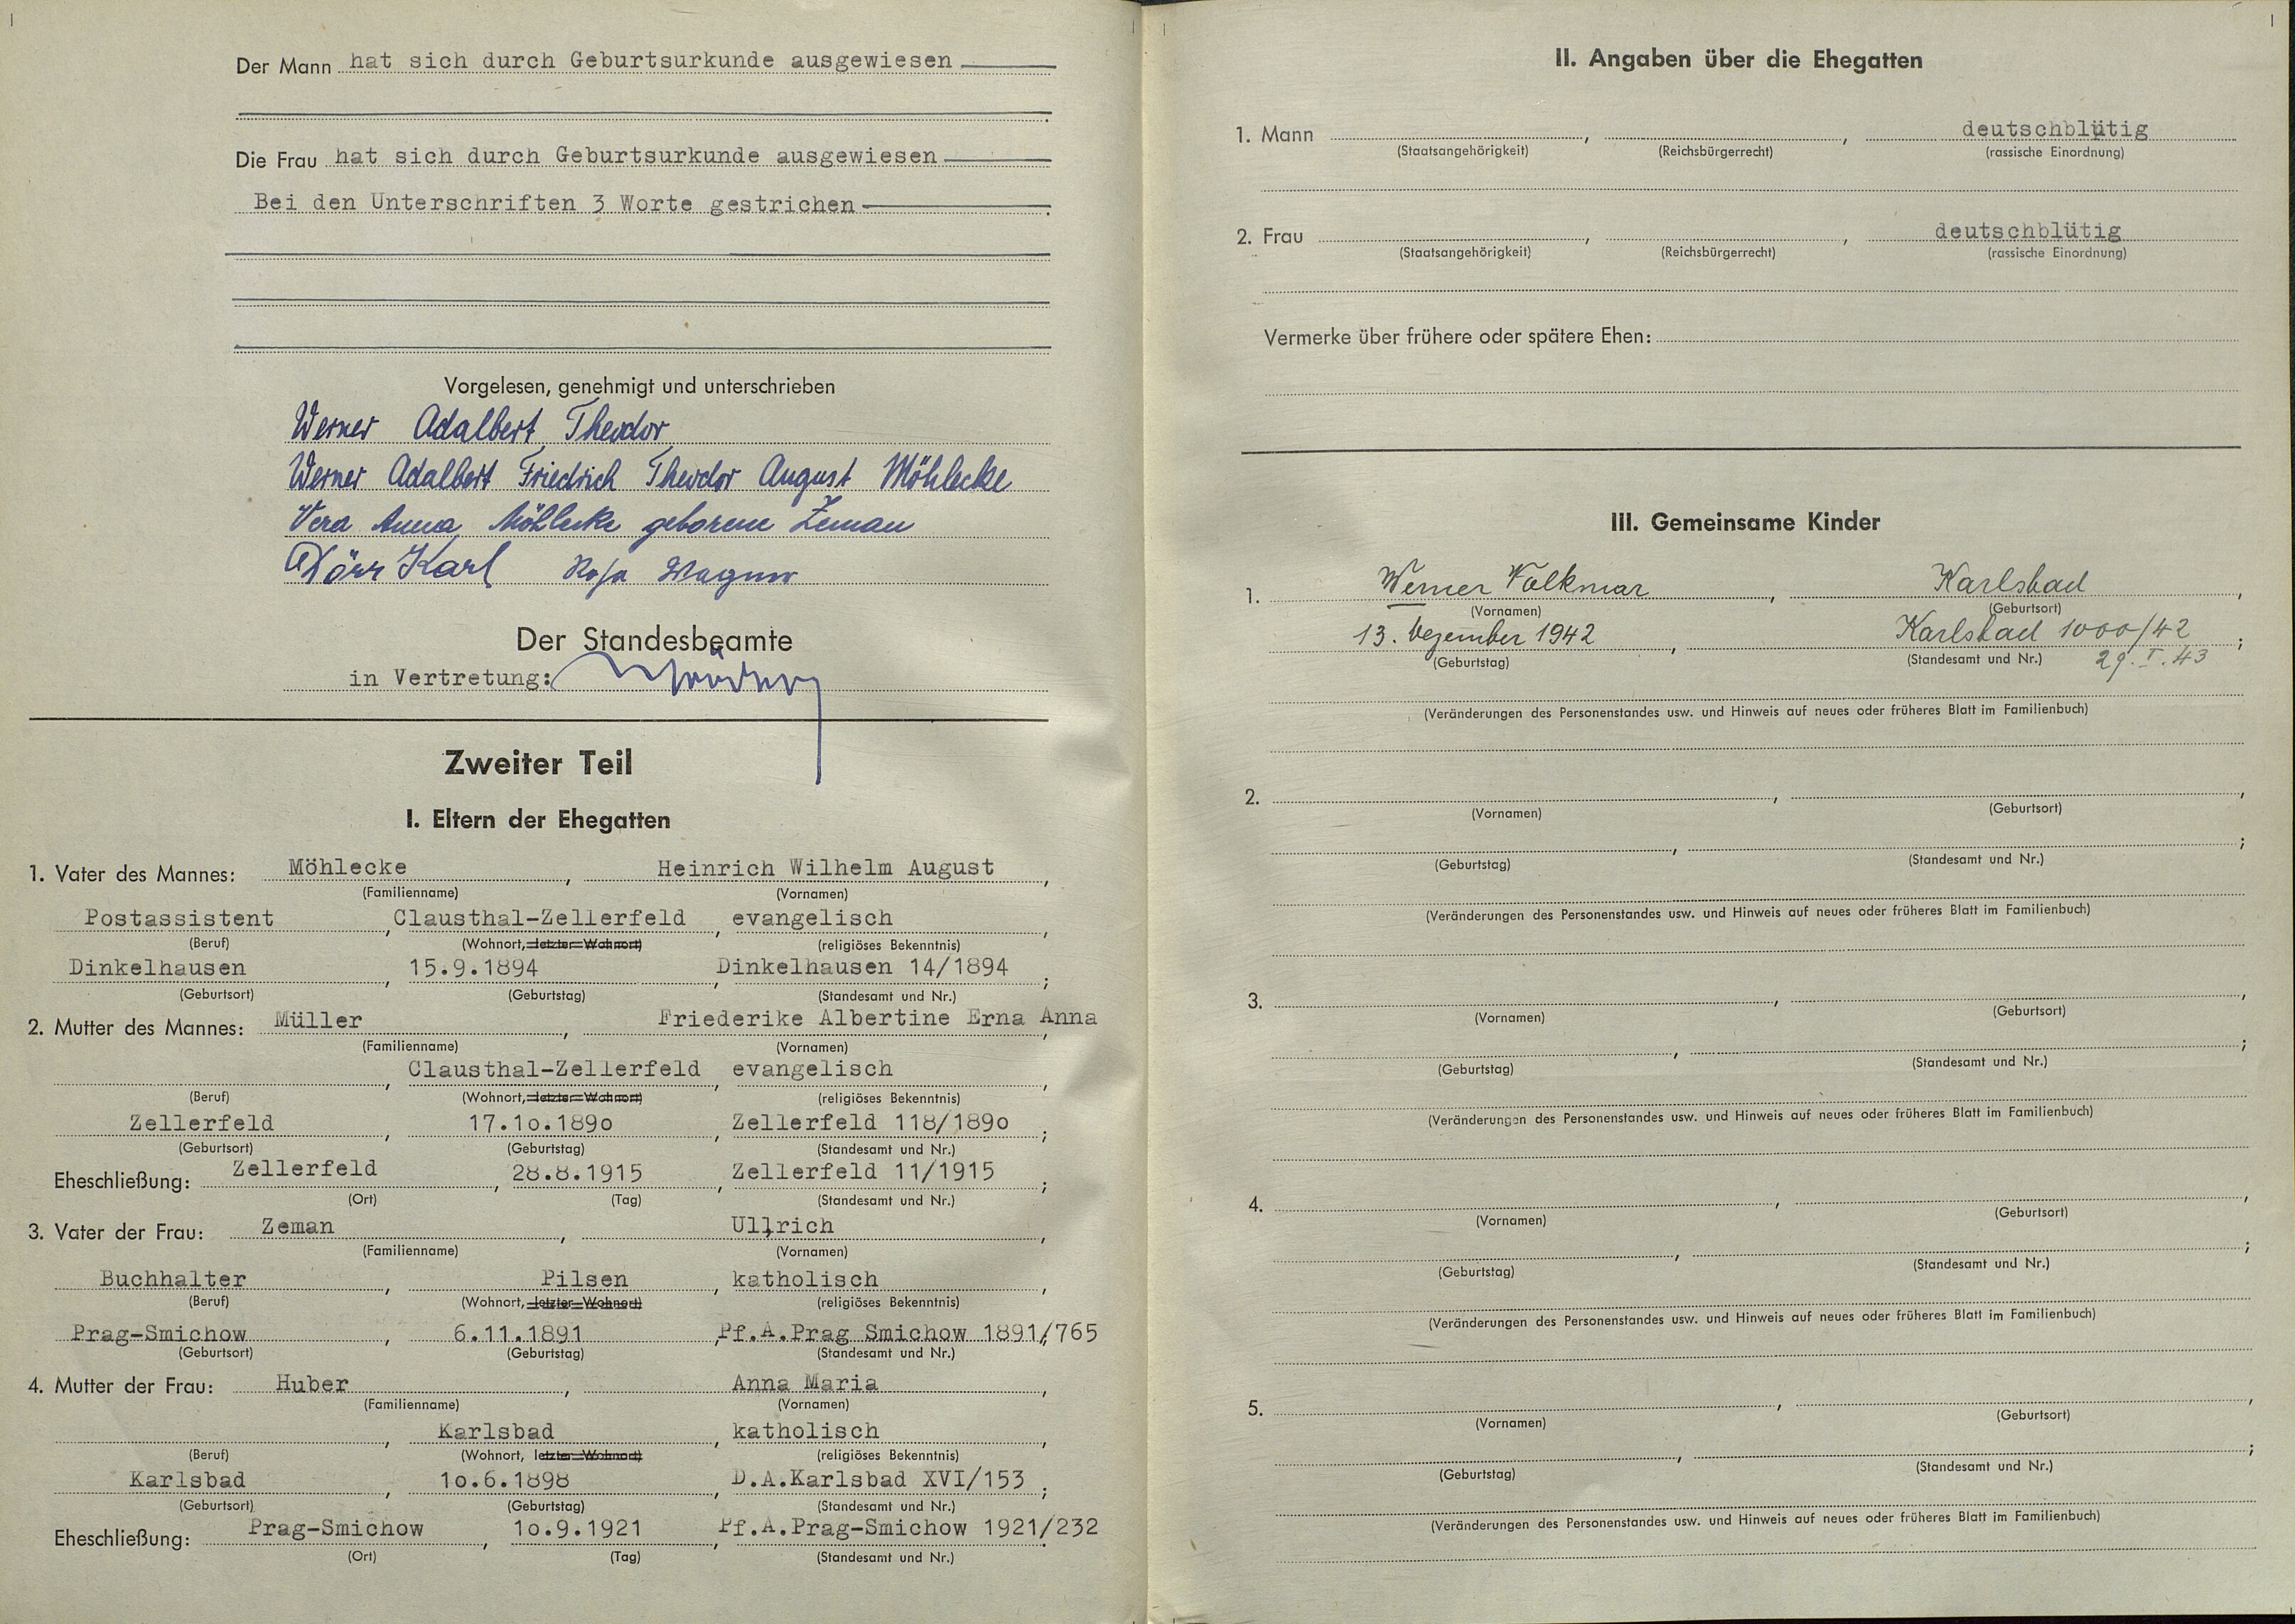 Der Mann hat sich durch Geburtsurkunde ausgewiesen
Die Frau hat sich durch Geburtsurkunde ausgewiesen
Bei den Unterschriften 3 Worte gestrichen
Vorgelesen, genehmigt und unterschrieben
Werner Adalbert Theodor
Werner Adalbert Friedrich Theodor August Möhlecke
Vera Anna Möhlecke geborene Zeman
Dörr Karl Rosa Wagner
Der Standesbeamte
in Vertretung:
Zweiter Teil
I. Eltern der Ehegatten
1. Vater des Mannes: Möhlecke, Heinrich Wilhelm August,
(Familienname) (Vornamen)
Postassistent, Clausthal-Zellerfeld, evangelisch,
(Beruf) (Wohnort, letzter Wohnort) (religiöses Bekenntnis)
Dinkelhausen, 15.9.1894, Dinkelhausen 14/1894;
(Geburtsort) (Geburtstag) (Standesamt und Nr.)
2. Mutter des Mannes: Müller, Friederike Albertine Erna Anna,
(Familienname) (Vornamen)
, Clausthal-Zellerfeld, evangelisch,
(Beruf) (Wohnort, letzter Wohnort) (religiöses Bekenntnis)
Zellerfeld, 17.10.1890, Zellerfeld 118/1890;
(Geburtsort) (Geburtstag) (Standesamt und Nr.)
Eheschließung: Zellerfeld, 28.8.1915, Zellerfeld 11/1915;
(Ort) (Tag) (Standesamt und Nr.)
3. Vater der Frau: Zeman, Ullrich,
(Familienname) (Vornamen)
Buchhalter, Pilsen, katholisch,
(Beruf) (Wohnort, letzter Wohnort) (religiöses Bekenntnis)
Prag-Smichow, 6.11.1891, Pf.A.Prag Smichow 1891/765
(Geburtsort) (Geburtstag) (Standesamt und Nr.)
4. Mutter der Frau: Huber, Anna Maria,
(Familienname) (Vornamen)
, Karlsbad, katholisch,
(Beruf) (Wohnort, letzter Wohnort) (religiöses Bekenntnis)
Karlsbad, 10.6.1898, D.A.Karlsbad XVI/153;
(Geburtsort) (Geburtstag) (Standesamt und Nr.)
Eheschließung: Prag-Smichow, 10.9.1921, Pf.A.Prag-Smichow 1921/232
(Ort) (Tag) (Standesamt und Nr.)
II. Angaben über die Ehegatten
1. Mann , , deutschblütig
(Staatsangehörigkeit) (Reichsbürgerrecht) (rassische Einordnung)
2. Frau , , deutschblütig
(Staatsangehörigkeit) (Reichsbürgerrecht) (rassische Einordnung)
Vermerke über frühere oder spätere Ehen:
III. Gemeinsame Kinder
1. Werner Volkmar, Karlsbad,
(Vornamen) (Geburtsort)
13. Dezember 1942, Karlsbad 1000/42;
(Geburtstag) (Standesamt und Nr.) 29. I. 43
(Veränderungen des Personenstandes usw. und Hinweis auf neues oder früheres Blatt im Familienbuch)
2. , ,
(Vornamen) (Geburtsort)
, ;
(Geburtstag) (Standesamt und Nr.)
(Veränderungen des Personenstandes usw. und Hinweis auf neues oder früheres Blatt im Familienbuch)
3. , ,
(Vornamen) (Geburtsort)
, ;
(Geburtstag) (Standesamt und Nr.)
(Veränderungen des Personenstandes usw. und Hinweis auf neues oder früheres Blatt im Familienbuch)
4. , ,
(Vornamen) (Geburtsort)
, ;
(Geburtstag) (Standesamt und Nr.)
(Veränderungen des Personenstandes usw. und Hinweis auf neues oder früheres Blatt im Familienbuch)
5. , ,
(Vornamen) (Geburtsort)
, ;
(Geburtstag) (Standesamt und Nr.)
(Veränderungen des Personenstandes usw. und Hinweis auf neues oder früheres Blatt im Familienbuch)